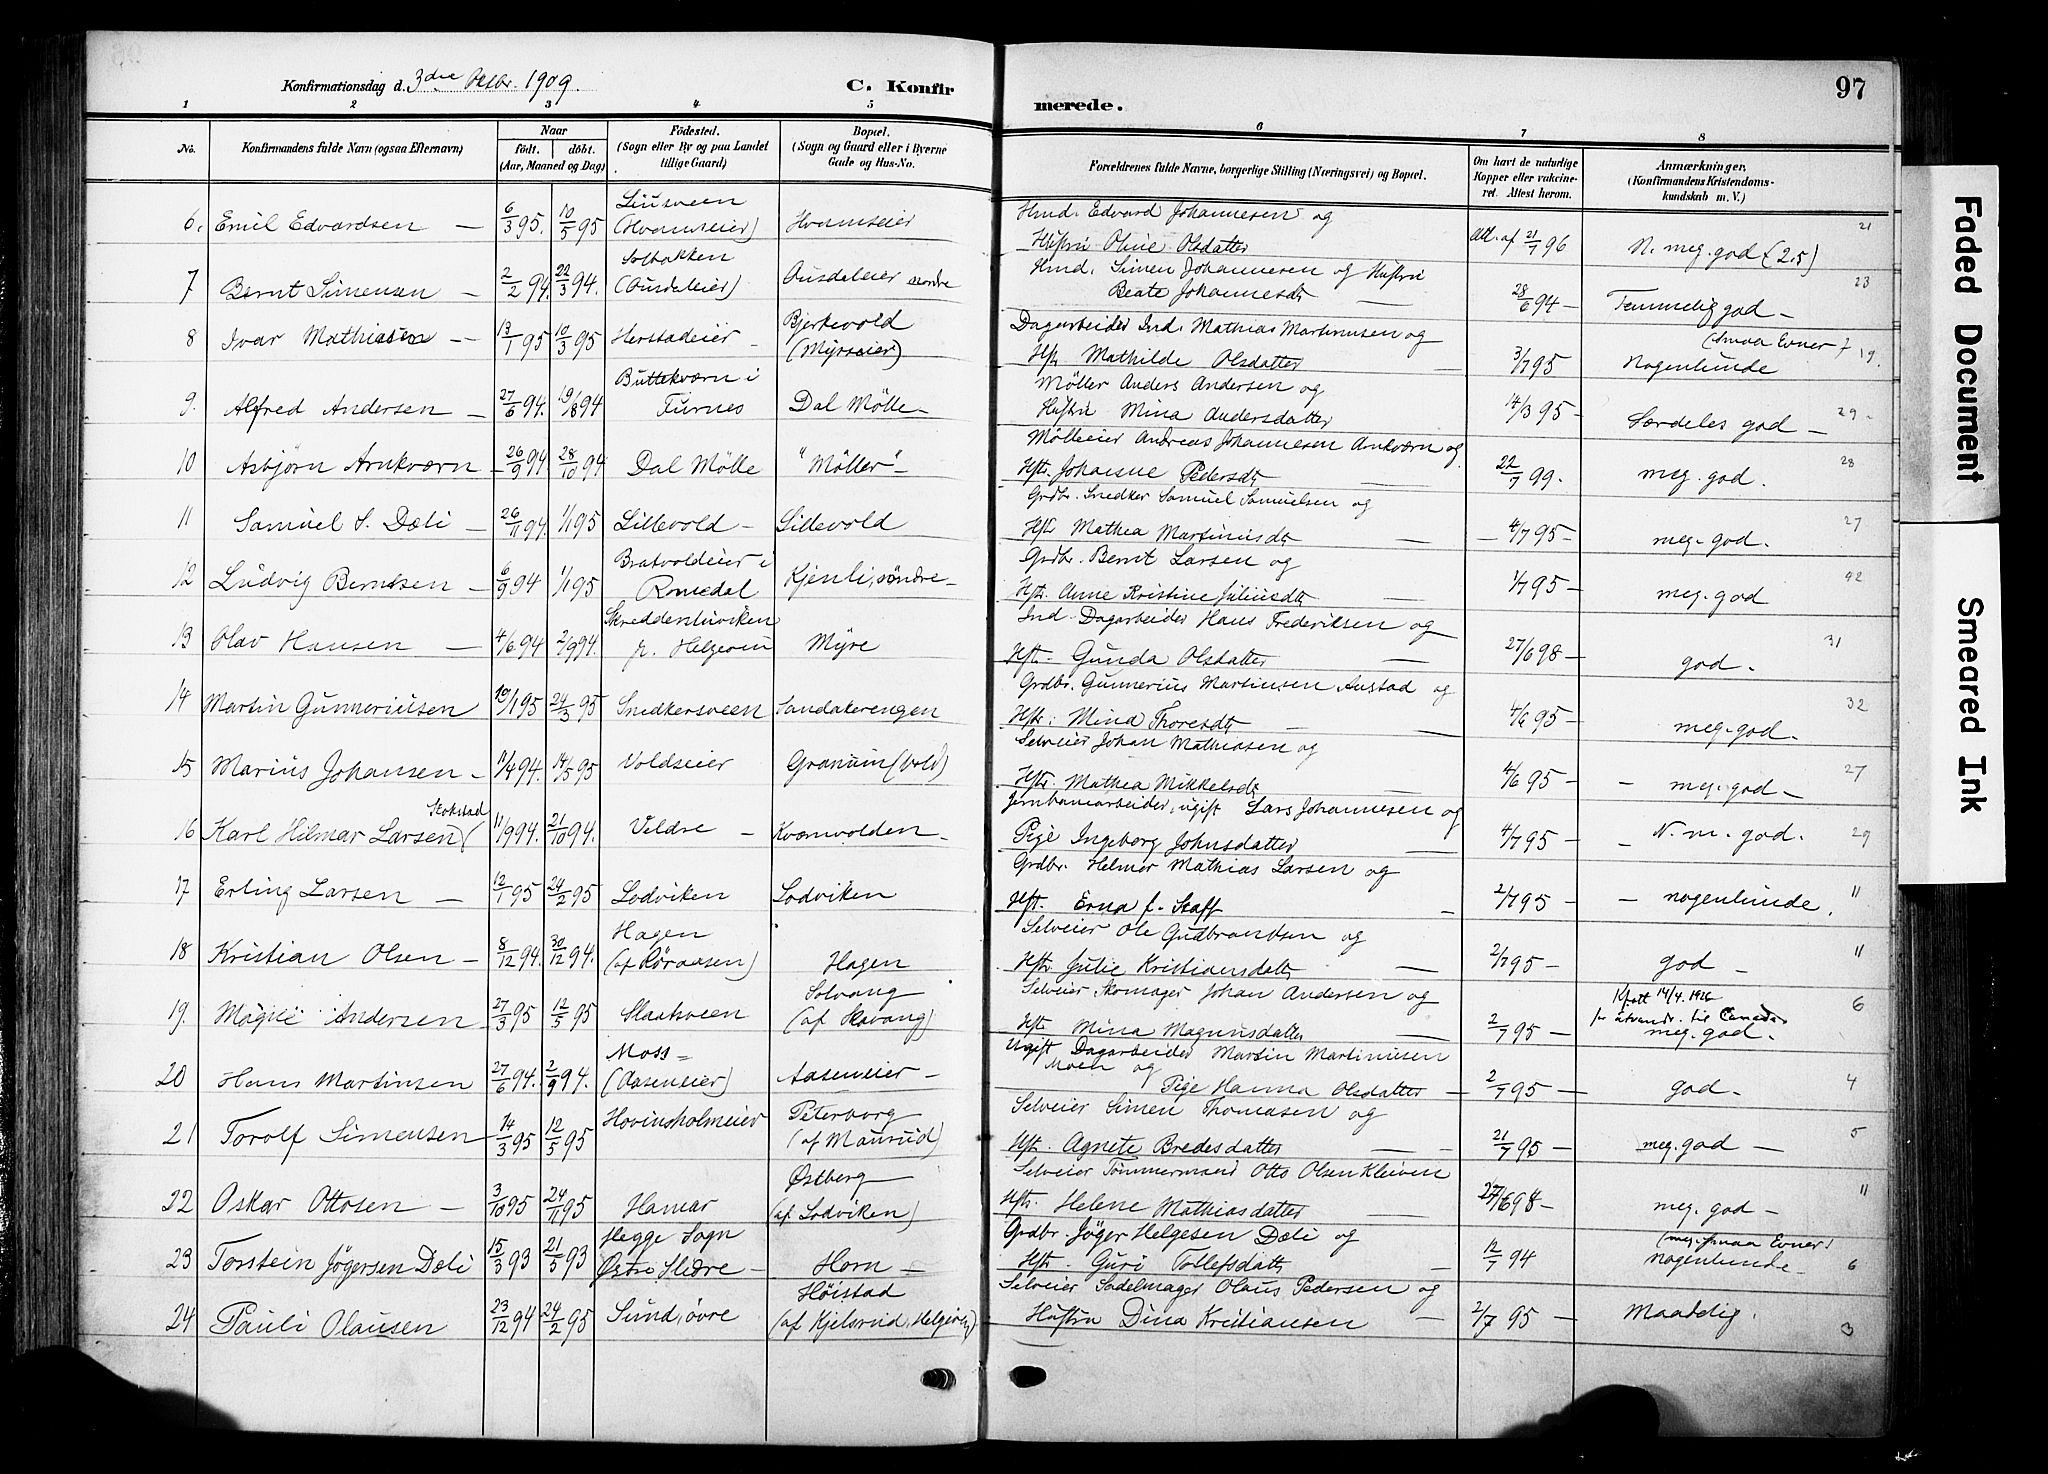 Konfirmationsdag d. 3die Oktbr. 1909.
C. Konfirmerede.
97
1 2 3 4 5 6 7 8
No. Konfirmandens fulde Navn (ogsaa Efternavn) Naar født. døbt. (Aar, Maaned og Dag) Fødested. (Sogn eller By og paa Landet tillige Gaard) Bopæl. (Sogn og Gaard eller i Byerne Gade og Hus-No. Forældrenes fulde Navne, borgerlige Stilling (Næringsvei) og Bopæl. Om havt de naturlige Kopper eller vakcineret. Attest herom. Anmærkninger, (Konfirmandens Kristendomskundskab m. V.)
6. Emil Edvardsen — 6/3 95. 10/5 95 (Hvamseier) Hvamseier Hmd. Edvard Johannesen og Hustru Oline Olsdatter Att. af 21/7 96 N. meg. god (2.5) 21
7 Bernt Simensen — 2/2 94. 22/3 94. Solbakken (Ousdaleier) Ousdaleier nordre Hmd. Simen Johannesen og Hustru Beate Johannesdt — 28/6 94 — Temmelig god — 23
8 Ivar Mathiasen — 13/1 95 10/3 95 Herstadeier — Bjerkevold (Myrseier) Dagarbeider Ind. Mathias Martinusen og Hst. Mathilde Olsdatter 3/7 95 (smaa Evner) Nogenlunde 19.
9. Alfred Andersen — 27/6 94. 19/8 94 Buttekværn i Furnes Dal Mølle — Møller Anders Andersen og Hustru Mina Andersdatter 14/3 95 — Særdeles god — 29
10 Asbjørn Ankværn — 26/9 94. 28/10 94 Dal Mølle "Møller" — Mølleeier Andreas Johannesen Ankværn og Hst. Johanne Pedersdt — 22/7 99. meg. god. 28
11 Samuel S. Dæli — 26/11 94. 1/1 95 Lillevold — Lillevold Grdbr. Snedker Samuel Samuelsen og Hst. Mathea Martinusdt — 4/7 95 — meg. god. 27
12 Ludvig Berntsen — 6/9 94 1/1 95 Bratvoldeier i Romedal Kjenli, søndre — Grdbr. Bernt Larsen og Hst. Anne Kristine Juliusdt — 1/7 95 — meg. god 42
13 Olav Hansen — 4/6 94 2/9 94. Skredderstuviken Myre Ind. Dagarbeider Hans Frederiksen og Hst. Gunda Olsdatter — 27/6 98 — god. 31
14 Martin Gunneriusen 10/1 95 24/3 95 Snedkersveen Sandakerengen Grdbr. Gunnerius Martinsen Austad og Hst. Mina Thoresdt — 4/6 95 — meg. god. 32
15 Marius Johansen — 11/4 94. 14/5 95 Voldseier Granum (Vold) Selveier Johan Mathiasen og Hst. Mathea Mikkelsdt 4/6 95 — — meg. god — 27
16 Karl Hilmar Larsen (Stokstad 11/9 94. 21/10 94. Veldre — Kvarnvolden — Jernbanearbeider, ugift Lars Johannesen og Pige Ingeborg Johnsdatter — 4/7 95 — — N. m. god. 29
17 Erling Larsen — 12/1 95 24/2 95 Lodviken Lodviken Grdbr. Helmer Mathias Larsen og Hst. Erna f. Staff — 2/7 95 — — nogenlunde. 11
18 Kristian Olsen — 8/12 94. 30/12 94. Hagen (af Røraasen) Hagen Selveier Ole Gudbrandsen og Hst. Julie Kristiansdatt — 2/7 95 — god — 11
19. Magne Andersen 27/3 95 12/5 95 Slaatsveen Solvang (af Skavang) Selveier Skomager Johan Andersen og Hst. Mina Magnusdatter — 2/7 95 — Kfatt 14/4. 1926 for utvandr. til Canada. meg. god. 6
20 Hans Martinsen 27/6 94. 2/9 94. Moss= (Aaseneier) Aaseneier — Ugift Dagarbeider Martin Martinusen Moen og Pige Hanna Olsdatter — 2/7 95 — god — 4
21 Torolf Simensen 14/3 95 12/5 95 Hovinsholmeier Peterborg (af Maurud) Selveier Simen Thomasen og Hst. Agnete Bredesdatter — 21/7 95 — meg. god — 5
22 Oskar Ottosen — 3/10 95 24/11 95 Hamar Østberg (af Lodviken) Selveier Tømmermand Otto Olsen Kleiven Hst. Helene Mathiasdatter — 27/6 98 — meg. god — 11
23 Torstein Jøgersen Dæli 15/3 93 21/5 93 Hegge Sogn Østre Slidre — Horn — Grdbr. Jøger Helgesen Dæli og Hst. Guri Tollefsdatt — 12/7 94 (meg. smaa Evner) nogenlunde — 6
24 Pauli Olausen 23/12 94 24/2 95 Sund, øvre Høistad (af Kjelsrud, Helgøen) Selveier Sadelmager Olaus Pedersen og Hustru Dina Kristiansen — 2/7 95 — Maadelig. 3
Faded Document
Smeared Ink